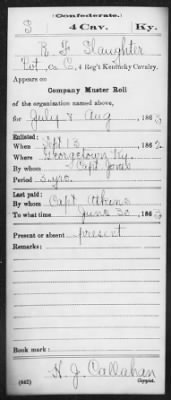 (Confederate.)
S 4 Cav. Ky.
R F Slaughter
Pvt, Co C, 4 Reg't Kentucky Cavalry.
Appears on
Company Muster Roll
of the organization named above,
for July & Aug, 1863
Enlisted:
When Sept 13, 1862
Where Georgetown Ky.
By whom Capt Jones
Period 3 yrs.
Last paid:
By whom Capt Atkins
To what time June 30, 1863
Present or absent present
Remarks:
Book mark:
H. J. Callahan
(642) Copyist.